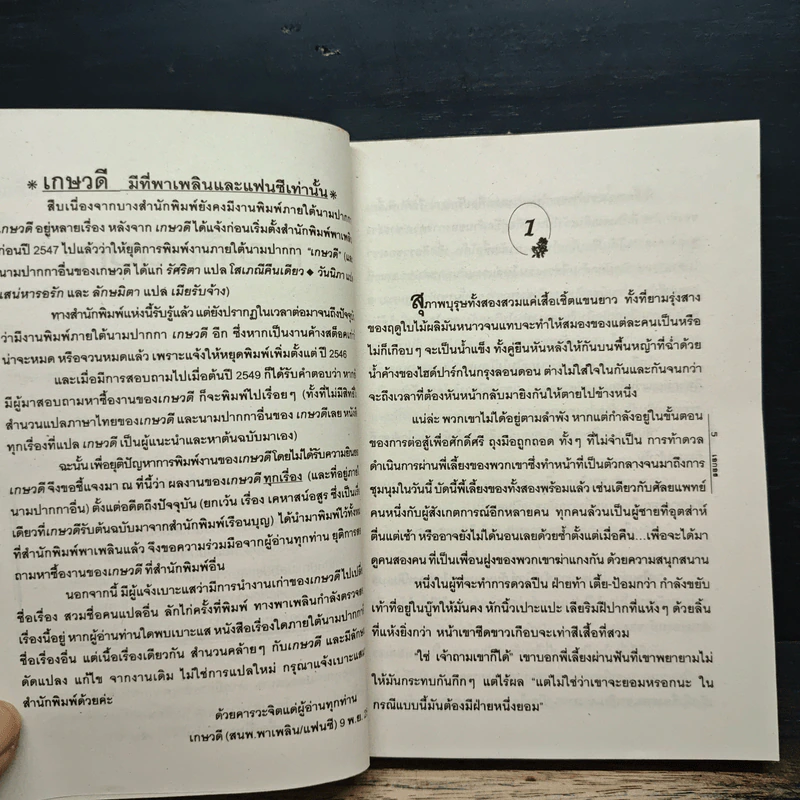 * เกษวดี มีที่พาเพลินและแฟนซีเท่านั้น *
สืบเนื่องจากบางสำนักพิมพ์ยังคงมีงานพิมพ์ภายใต้นามปากกา
เกษวดี อยู่หลายเรื่อง หลังจาก เกษวดี ได้แจ้งก่อนเริ่มตั้งสำนักพิมพ์พาเพลิน
ก่อนปี 2547 ไปแล้วว่าให้ยุติการพิมพ์งานภายใต้นามปากกา "เกษวดี" (และ
นามปากกาอื่นของเกษวดี ได้แก่ รัศริตา แปล โสเภณีคืนเดียว ◆ วันนิภา แปล
เสน่หารอรัก และ ลักษมิตา แปล เมียรับจ้าง)
ทางสำนักพิมพ์แห่งนี้รับรู้แล้ว แต่ยังปรากฏในเวลาต่อมาจนถึงปัจจุ
ว่ามีงานพิมพ์ภายใต้นามปากกา เกษวดี อีก ซึ่งหากเป็นงานค้างสต็อคเก่า
น่าจะหมด หรือจวนหมดแล้ว เพราะแจ้งให้หยุดพิมพ์เพิ่มตั้งแต่ ปี 2546
และเมื่อมีการสอบถามไปเมื่อต้นปี 2549 ก็ได้รับคำตอบว่า หาก
มีผู้มาสอบถามหาซื้องานของเกษวดี ก็จะพิมพ์ไปเรื่อยๆ (ทั้งที่ไม่มีสิทธิ์
สำนวนแปลภาษาไทยของเกษวดี และนามปากกาอื่นของ เกษวดีเลย หนัก
ทุกเรื่องที่แปล เกษวดี เป็นผู้แนะนำและหาต้นฉบับมาเอง)
ฉะนั้น เพื่อยุติปัญหาการพิมพ์งานของเกษวดีโดยไม่ได้รับความยินยอ
เกษวดี จึงขอชี้แจงมา ณ ที่นี้ว่า ผลงานของเกษวดี ทุกเรื่อง (และที่อยู่ภาย
นามปากกาอื่น) ตั้งแต่อดีตถึงปัจจุบัน (ยกเว้น เรื่อง เคหาสน์อสูร ซึ่งเป็นเรื่
เดียวที่เกษวดีรับต้นฉบับมาจากสำนักพิมพ์เรือนบุญ) ได้นำมาพิมพ์ไว้ทั้งหม
ที่สำนักพิมพ์พาเพลินแล้ว จึงขอความร่วมมือจากผู้อ่านทุกท่าน ยุติการสอ
ถามหาซื้องานของเกษวดี ที่สำนักพิมพ์อื่น
นอกจากนี้ มีผู้แจ้งเบาะแสว่ามีการนำงานเก่าของเกษวดีไปเปลี่
ชื่อเรื่อง สวมชื่อคนแปลอื่น ลักไก่ครั้งที่พิมพ์ ทางพาเพลินกำลังตรวจส
เรื่องนี้อยู่ หากผู้อ่านท่านใดพบเบาะแส หนังสือเรื่องใดภายใต้นามปากกา
ชื่อเรื่องอื่น แต่เนื้อเรื่องเดียวกัน สำนวนคล้ายๆ กับเกษวดี และมีลักษ
ดัดแปลง แก้ไข จากงานเดิม ไม่ใช่การแปลใหม่ กรุณาแจ้งเบาะแส
สำนักพิมพ์ด้วยค่ะ
ด้วยคารวะจิตแด่ผู้อ่านทุกท่าน
เกษวดี (สนพ.พาเพลิน/แฟนซี) 9 พ.ย. 2
1
สุภาพบุรุษทั้งสองสวมแค่เสื้อเชิ้ตแขนยาว ทั้งที่ยามรุ่งสาง
ของฤดูใบไม้ผลิมันหนาวจนแทบจะทำให้สมองของแต่ละคนเป็นหรือ
ไม่ก็เกือบๆ จะเป็นน้ำแข็ง ทั้งคู่ยืนหันหลังให้กันบนพื้นหญ้าที่ฉ่ำด้วย
น้ำค้างของไฮด์ปาร์กในกรุงลอนดอน ต่างไม่ใส่ใจในกันและกันจนกว่า
จะถึงเวลาที่ต้องหันหน้ากลับมายิงกันให้ตายไปข้างหนึ่ง
แน่ล่ะ พวกเขาไม่ได้อยู่ตามลำพัง หากแต่กำลังอยู่ในขั้นตอน
ของการต่อสู้เพื่อศักดิ์ศรี ถุงมือถูกถอด ทั้งๆ ที่ไม่จำเป็น การท้าดวล
ดำเนินการผ่านพี่เลี้ยงของพวกเขาซึ่งทำหน้าที่เป็นตัวกลางจนมาถึงการ
ชุมนุมในวันนี้ บัดนี้พี่เลี้ยงของทั้งสองพร้อมแล้ว เช่นเดียวกับศัลยแพทย์
คนหนึ่งกับผู้สังเกตการณ์อีกหลายคน ทุกคนล้วนเป็นผู้ชายที่อุตส่าห์
ตื่นแต่เช้า หรืออาจยังไม่ได้นอนเลยด้วยซ้ำตั้งแต่เมื่อคืน...เพื่อจะได้มา
ดูคนสองคน ที่เป็นเพื่อนฝูงของพวกเขาฆ่าแกงกัน ด้วยความสนุกสนาน
หนึ่งในผู้ที่จะทำการดวลปืน ฝ่ายท้า เตี้ย-ป้อมกว่า กำลังขยับ
เท้าที่อยู่ในบู๊ทให้มั่นคง หักนิ้วเปาะแปะ เลียริมฝีปากที่แห้งๆ ด้วยลิ้น
ที่แห้งยิ่งกว่า หน้าเขาซีดขาวเกือบจะเท่าสีเสื้อที่สวม
"ใช่ เจ้าถามเขาก็ได้" เขาบอกพี่เลี้ยงผ่านฟันที่เขาพยายามไม่
ให้มันกระทบกันกึกๆ แต่ไร้ผล "แต่ไม่ใช่ว่าเขาจะยอมหรอกนะ ใน
กรณีแบบนี้มันต้องมีฝ่ายหนึ่งยอม"
5